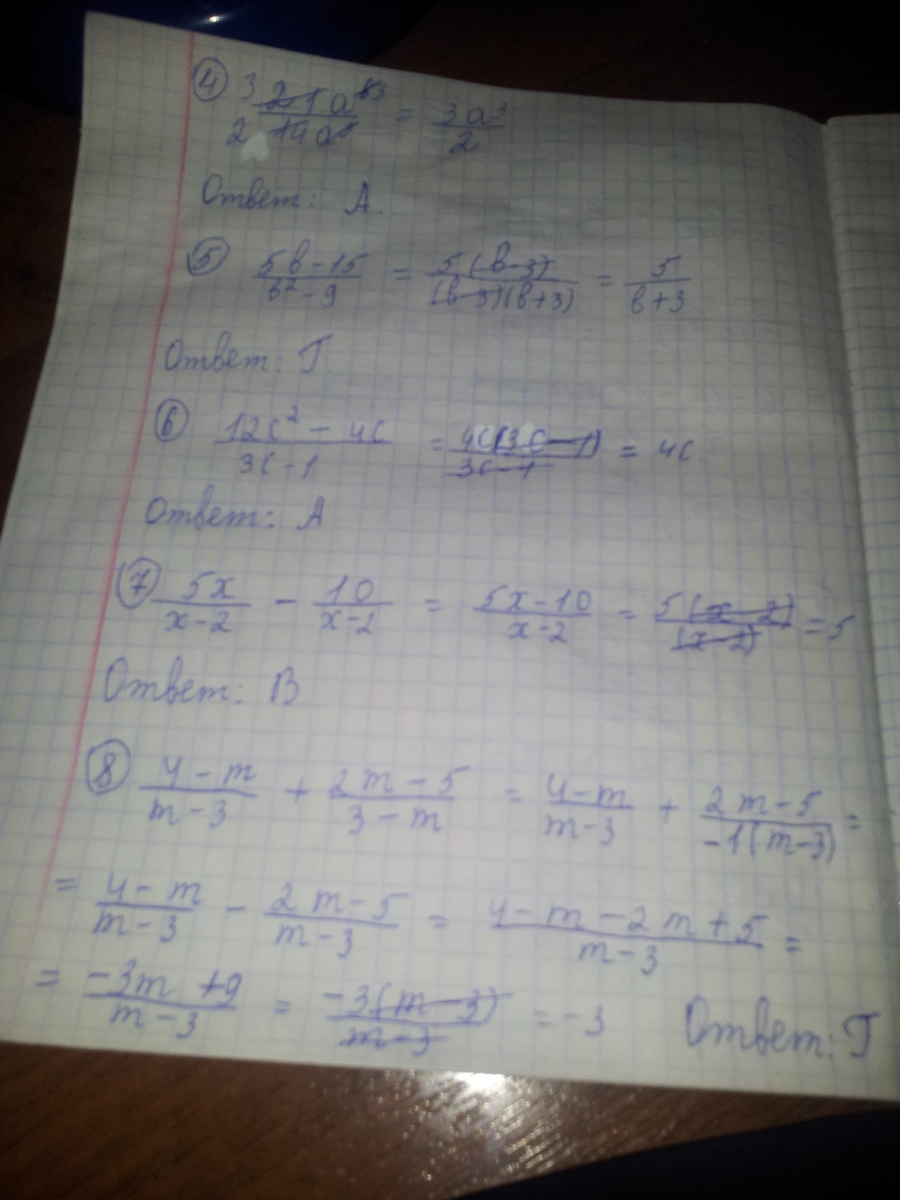 ④ 3 21a⁶ ³ / 2 14a³ = 3a³/2
Ответ: А.
⑤ (5в-15)/(в²-9) = 5(в-3)/((в-3)(в+3)) = 5/(в+3)
Ответ: Г.
⑥ (12с² - 4с)/(3с-1) = 4с(3с-1)/(3с-1) = 4с
Ответ: А
⑦ 5x/(x-2) - 10/(x-2) = (5x-10)/(x-2) = 5(x-2)/(x-2) = 5
Ответ: В
⑧ (4-m)/(m-3) + (2m-5)/(3-m) = (4-m)/(m-3) + (2m-5)/(-1(m-3)) =
= (4-m)/(m-3) - (2m-5)/(m-3) = (4-m-2m+5)/(m-3) =
= (-3m+9)/(m-3) = -3(m-3)/(m-3) = -3 Ответ: Г